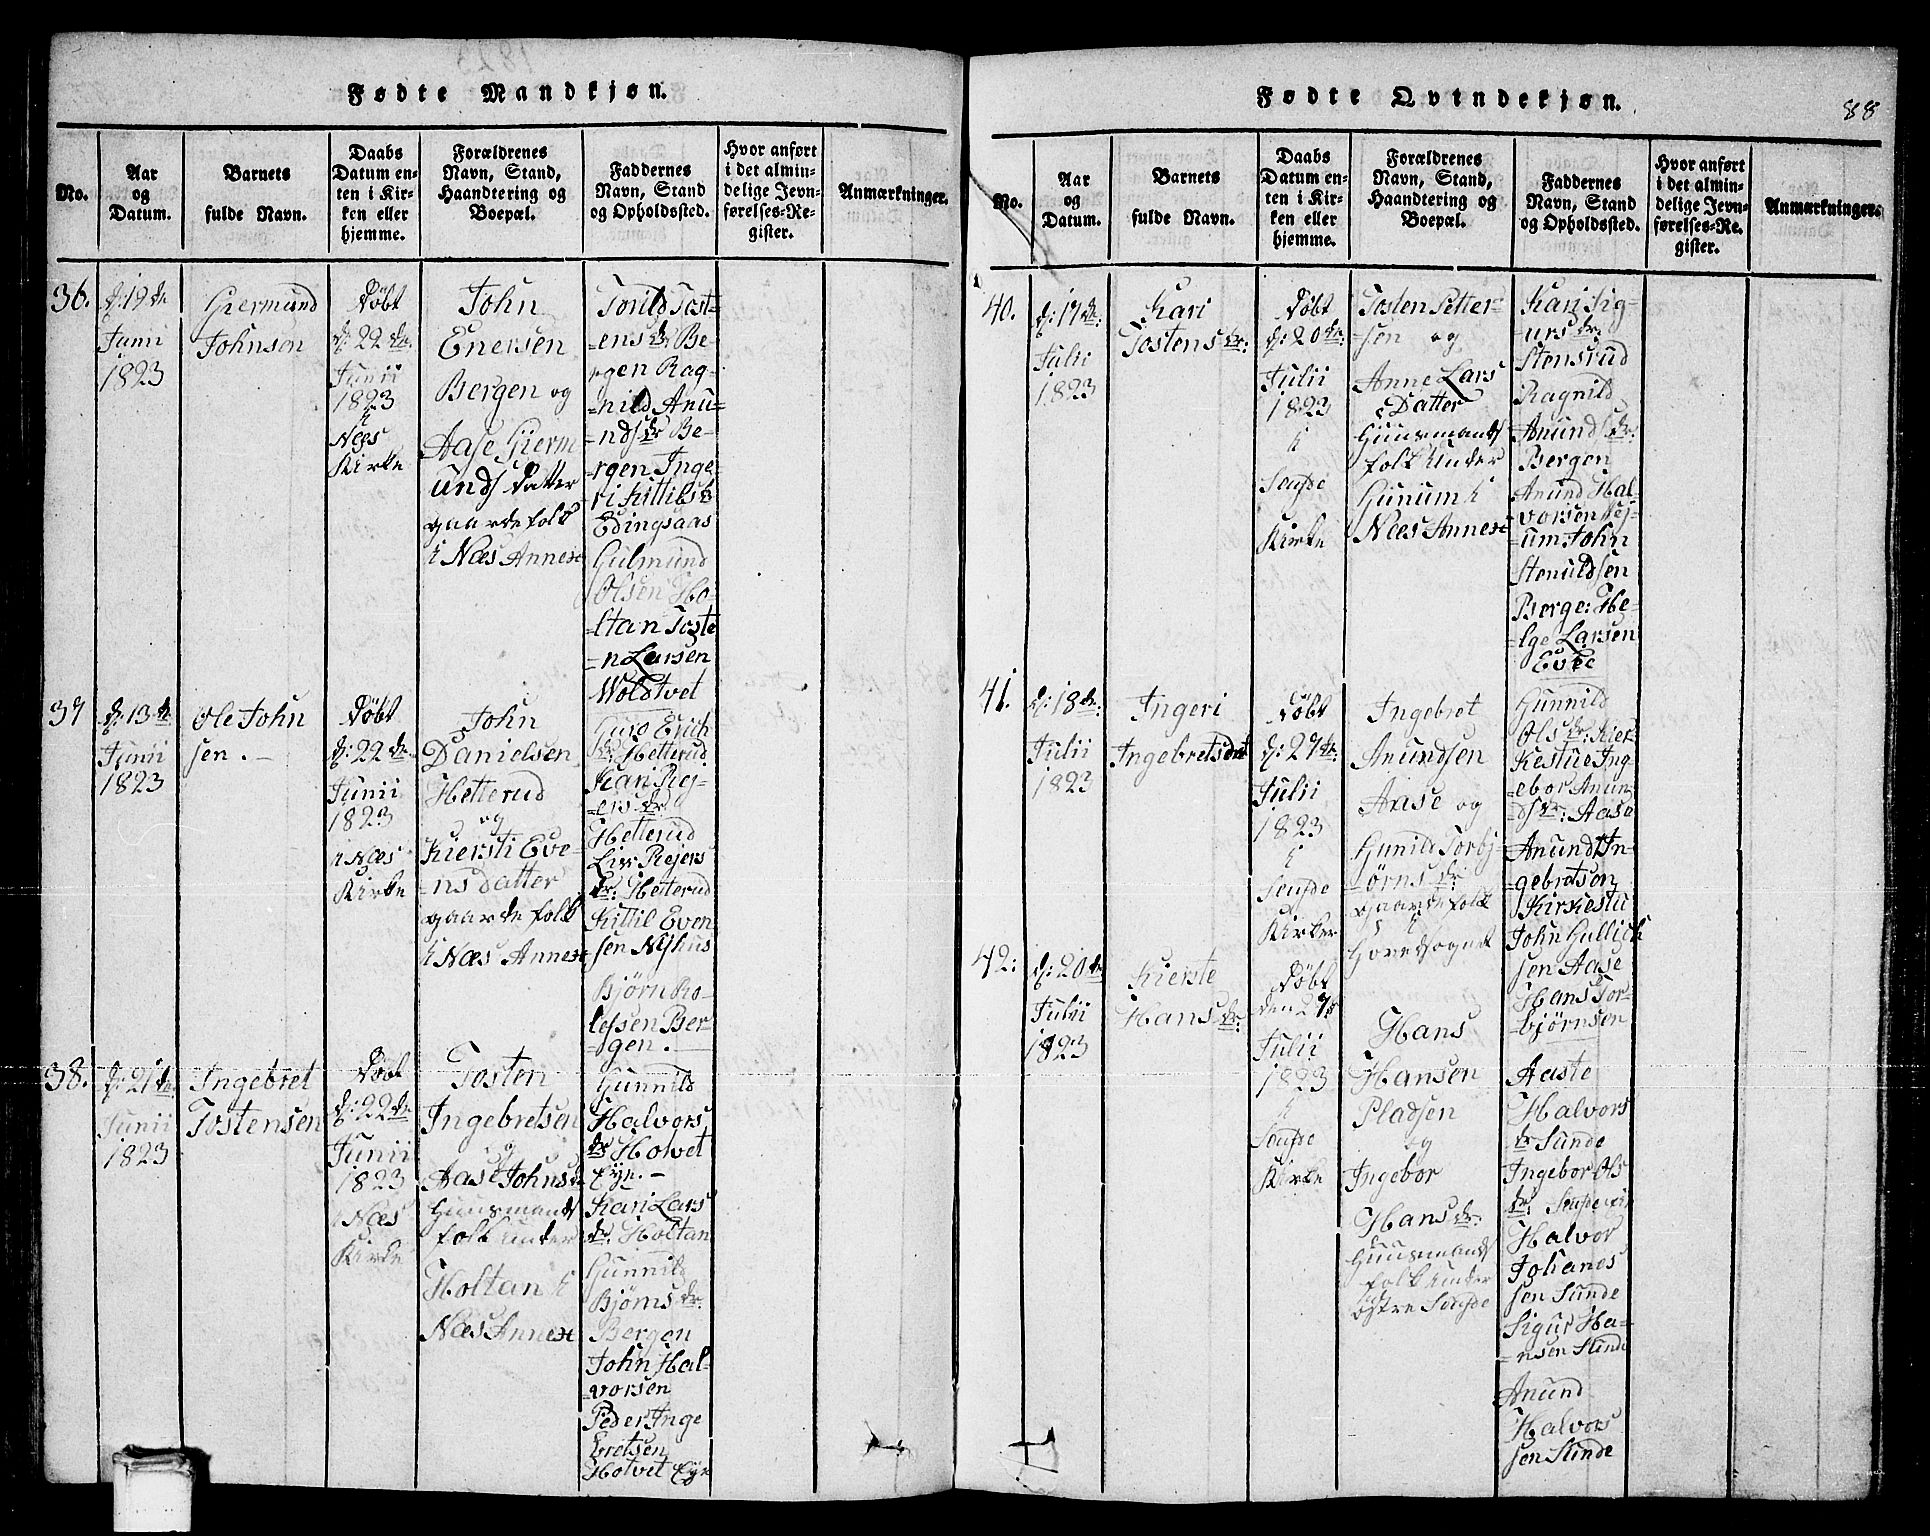 Fødte Mandkjøn.
No.
Aar
og
Datum.
Barnets
fulde Navn.
Daabs
Datum en-
ten i Kir-
ken eller
hjemme.
Forældrenes
Navn, Stand,
Haandtering og
Boepæl.
Faddernes
Navn, Stand
og Opholdssted.
Hvor anført
i det almin-
delige Jevn-
førelses-Re-
gister.
Anmærkninger.
36.
d: 19de
Junii
1823
Giermund
Johnson
Døbt
d: 22de
Junii
1823
i
Næs
Kirke
John
Enersen
Bergen og
Aase Gierm
unds Datter
gaardefolk
i Næs Annex
Torild Tost-
ens dr Be-
rgen Rag-
nild Anu-
nds dr Be-
rgen Inge
ri Kittils dr
Edingsaas
Gulmund
Olsen Ho-
ltan Toste
n Larsen
Woldtvet
37
d: 13de
Junii
1823
Ole John
sen.
Døbt
d: 22de
Junii
1823
i Næs
Kirke
John
Danielsen
Hetterud
og
Kiersti Eve-
ns Datter
gaardefolk
i Næs Annex
Guro Erich
dr Hetterud
Kari Rej-
ers dr
Hetterud
Liv Rejers
dr: Hetterud
Kittil Even
sen Nyhus
Bjørn Ro-
lefsen Ber-
gen.
38.
d: 21de
Junii
1823
Ingebret
Tostensen
Døbt
d: 22de
Junii
1823
i Næs
Kirke
Tosten
Ingebretsen
og
Aase Johns d
Huusmands
folk under
Holtan i
Næs Annex
Gunnild
Halvors
dr Hotvet
Eye.
Kari Lars
dr: Holtan
Gunnild
Bjørns dr:
Bergen
John Hal-
vorsen
Peder Inge
bretsen
Hotvet Eye
Fødte Qvindekjøn.
88
No.
Aar
og
Datum.
Barnets
fulde Navn.
Daabs
Datum en-
ten i Kir-
ken eller
hjemme.
Forældrenes
Navn, Stand,
Haandtering og
Boepæl.
Faddernes
Navn, Stand
og Opholdssted.
Hvor anført
i det almin-
delige Jevn-
førelses-Re-
gister.
Anmærkninger.
40.
d: 17de:
Julii
1823
Kari
Tostens dr:
Døbt
d: 20de:
Julii
1823
i
Soufde
Kirke
Tosten Petter-
sen og
Anne Lars
Datter
Huusmands
folk under
Gunum i
Næs Annex
Kari Sig-
urs dr:
Stensrud
Ragnild
Anunds dr:
Bergen
Anund Hal-
vorsen Sej-
um John
Stenuldsen
Berge: He-
lge Larsen
Evie
41.
d: 18de:
Julii
1823
Ingeri
Ingebretsdat
Døbt
d: 27de
Julii
1823
i
Soufde
Kirker
Ingebret
Anundsen
Aase og
Gunild Torbj
ørns dr
gaardefolk
i
Hovedsognet
Gunnild
Ols dr: Kier
Kestue Ing
ebor Anun
ds dr: Aase
Anund In-
gebretson
Kirkestu
John Gullich
sen Aase
Hans Tor-
bjørnsen
42:
d: 20de
Julii
1823
Kierste
Hans dr:
Døbt
den 27de
Julii
1823
i
Soufde
Kirke
Hans
Hansen
Pladsen
og
Ingebor
Hans dr:
Huusmands
folk under
østre Soufde
Aaste
Halvors
dr Sunde
Ingebor Ols
dr: Soufde
Halvor
Johanes
sen Sunde
Sigur Ha-
nsen Slinde
Anund
Halvors
sen Slinde